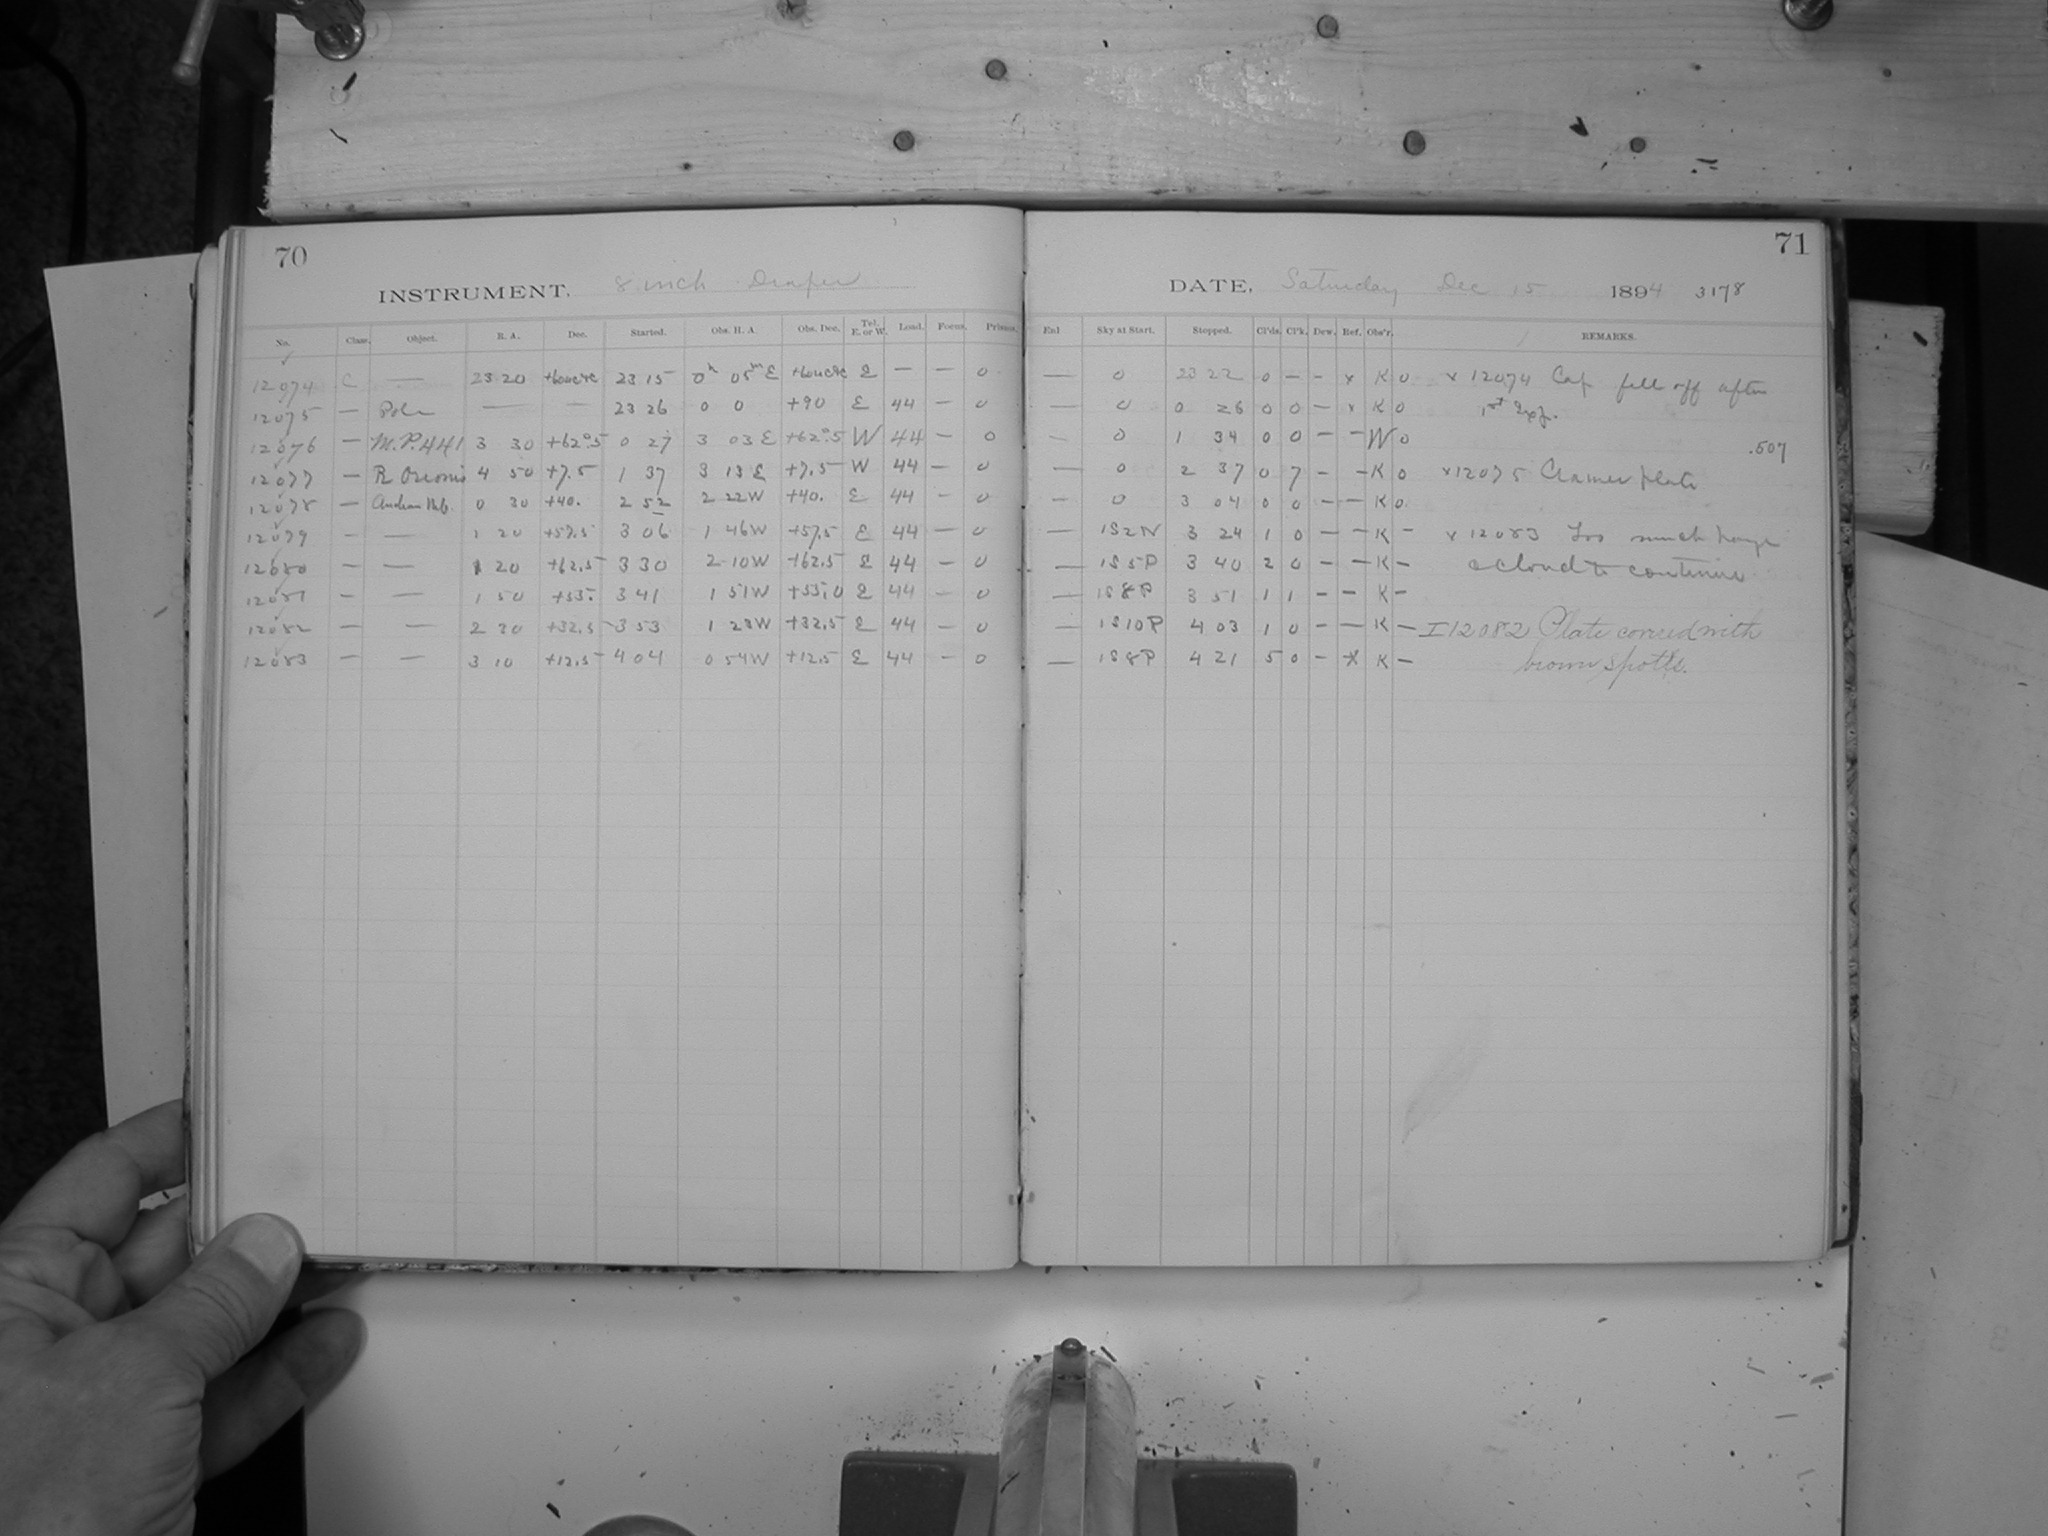 70
INSTRUMENT. 8 inch Draper
No. Class. Object. R. A. Dec. Started. Obs. H. A. Obs. Dec. Tel. E. or W. Load. Focus. Prisms.
12074 C — 23 20 23 15 0h 05m E E — — 0
12075 — Pole — — 23 26 0 0 +90 E 44 — 0
12076 — M.P.441 3 30 +62°.5 0 27 3 03 E +62°.5 W 44 — 0
12077 — R Orionis 4 50 +7.5 1 37 3 13 E +7.5 W 44 — 0
12078 — 0 30 +40. 2 52 2 22W +40. E 44 — 0
12079 — — 1 20 +57.5 3 06 1 46W +57.5 E 44 — 0
12080 — — 1 20 +62.5 3 30 2 10W +62.5 E 44 — 0
12081 — — 1 50 +55. 3 41 1 51W +55.0 E 44 — 0
12082 — — 2 30 +32.5 3 53 1 23W +32.5 E 44 — 0
12083 — — 3 10 +12.5 4 04 0 54W +12.5 E 44 — 0
71
DATE. Saturday Dec 15 1894 3178
Enl Sky at Start. Stopped. Cl'ds. Cl'k. Dew. Ref. Obs'r. REMARKS.
— 0 23 22 0 — — x K 0 x 12074 Cap fell off after
— 0 0 26 0 0 — x K 0 1st Exp.
— 0 1 34 0 0 — — W 0 .507
— 0 2 37 0 7 — — K 0 x12075 Cramer plate
— 0 3 04 0 0 — — K 0
— 1S2N 3 24 1 0 — — K — x 12083 Too much haze
— 1S5P 3 40 2 0 — — K — & cloud to continue
— 1S8P 3 51 1 1 — — K —
— 1S10P 4 03 1 0 — — K — I12082 Plate covered with
— 1S8P 4 21 5 0 — x K — brown spots.